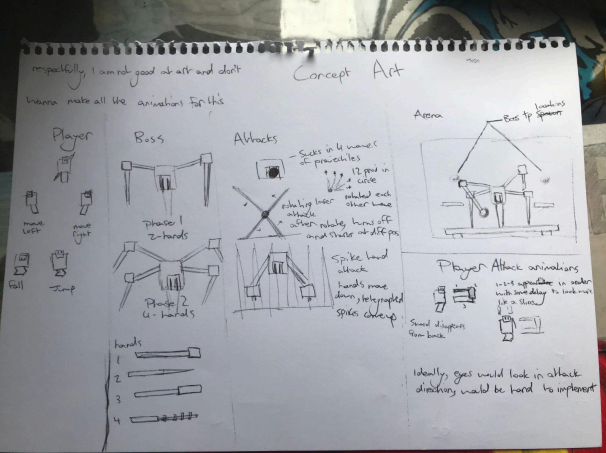 respectfully, I am not good at art and don't
wanna make all the animations for this
Concept Art
Player
move
left
move
right
Fall
Jump
Boss
Phase 1
2-hands
Phase 2
4-hands
hands
1
2
3
4
Attacks
Sucks in 4 waves
of projectiles
12 proj in
circle
rotated each
other wave
rotating laser
attack
after rotate, turns off
and starts at diff pos
Spike hand
attack
hands move
down, telegraphed
spikes come up
Arena
Boss tp
locations
Player Attack animations
1-2-3 in order
with some delay to look more
like a slash
Sword disappears
from back
Ideally, eyes would look in attack
direction, would be hard to implement